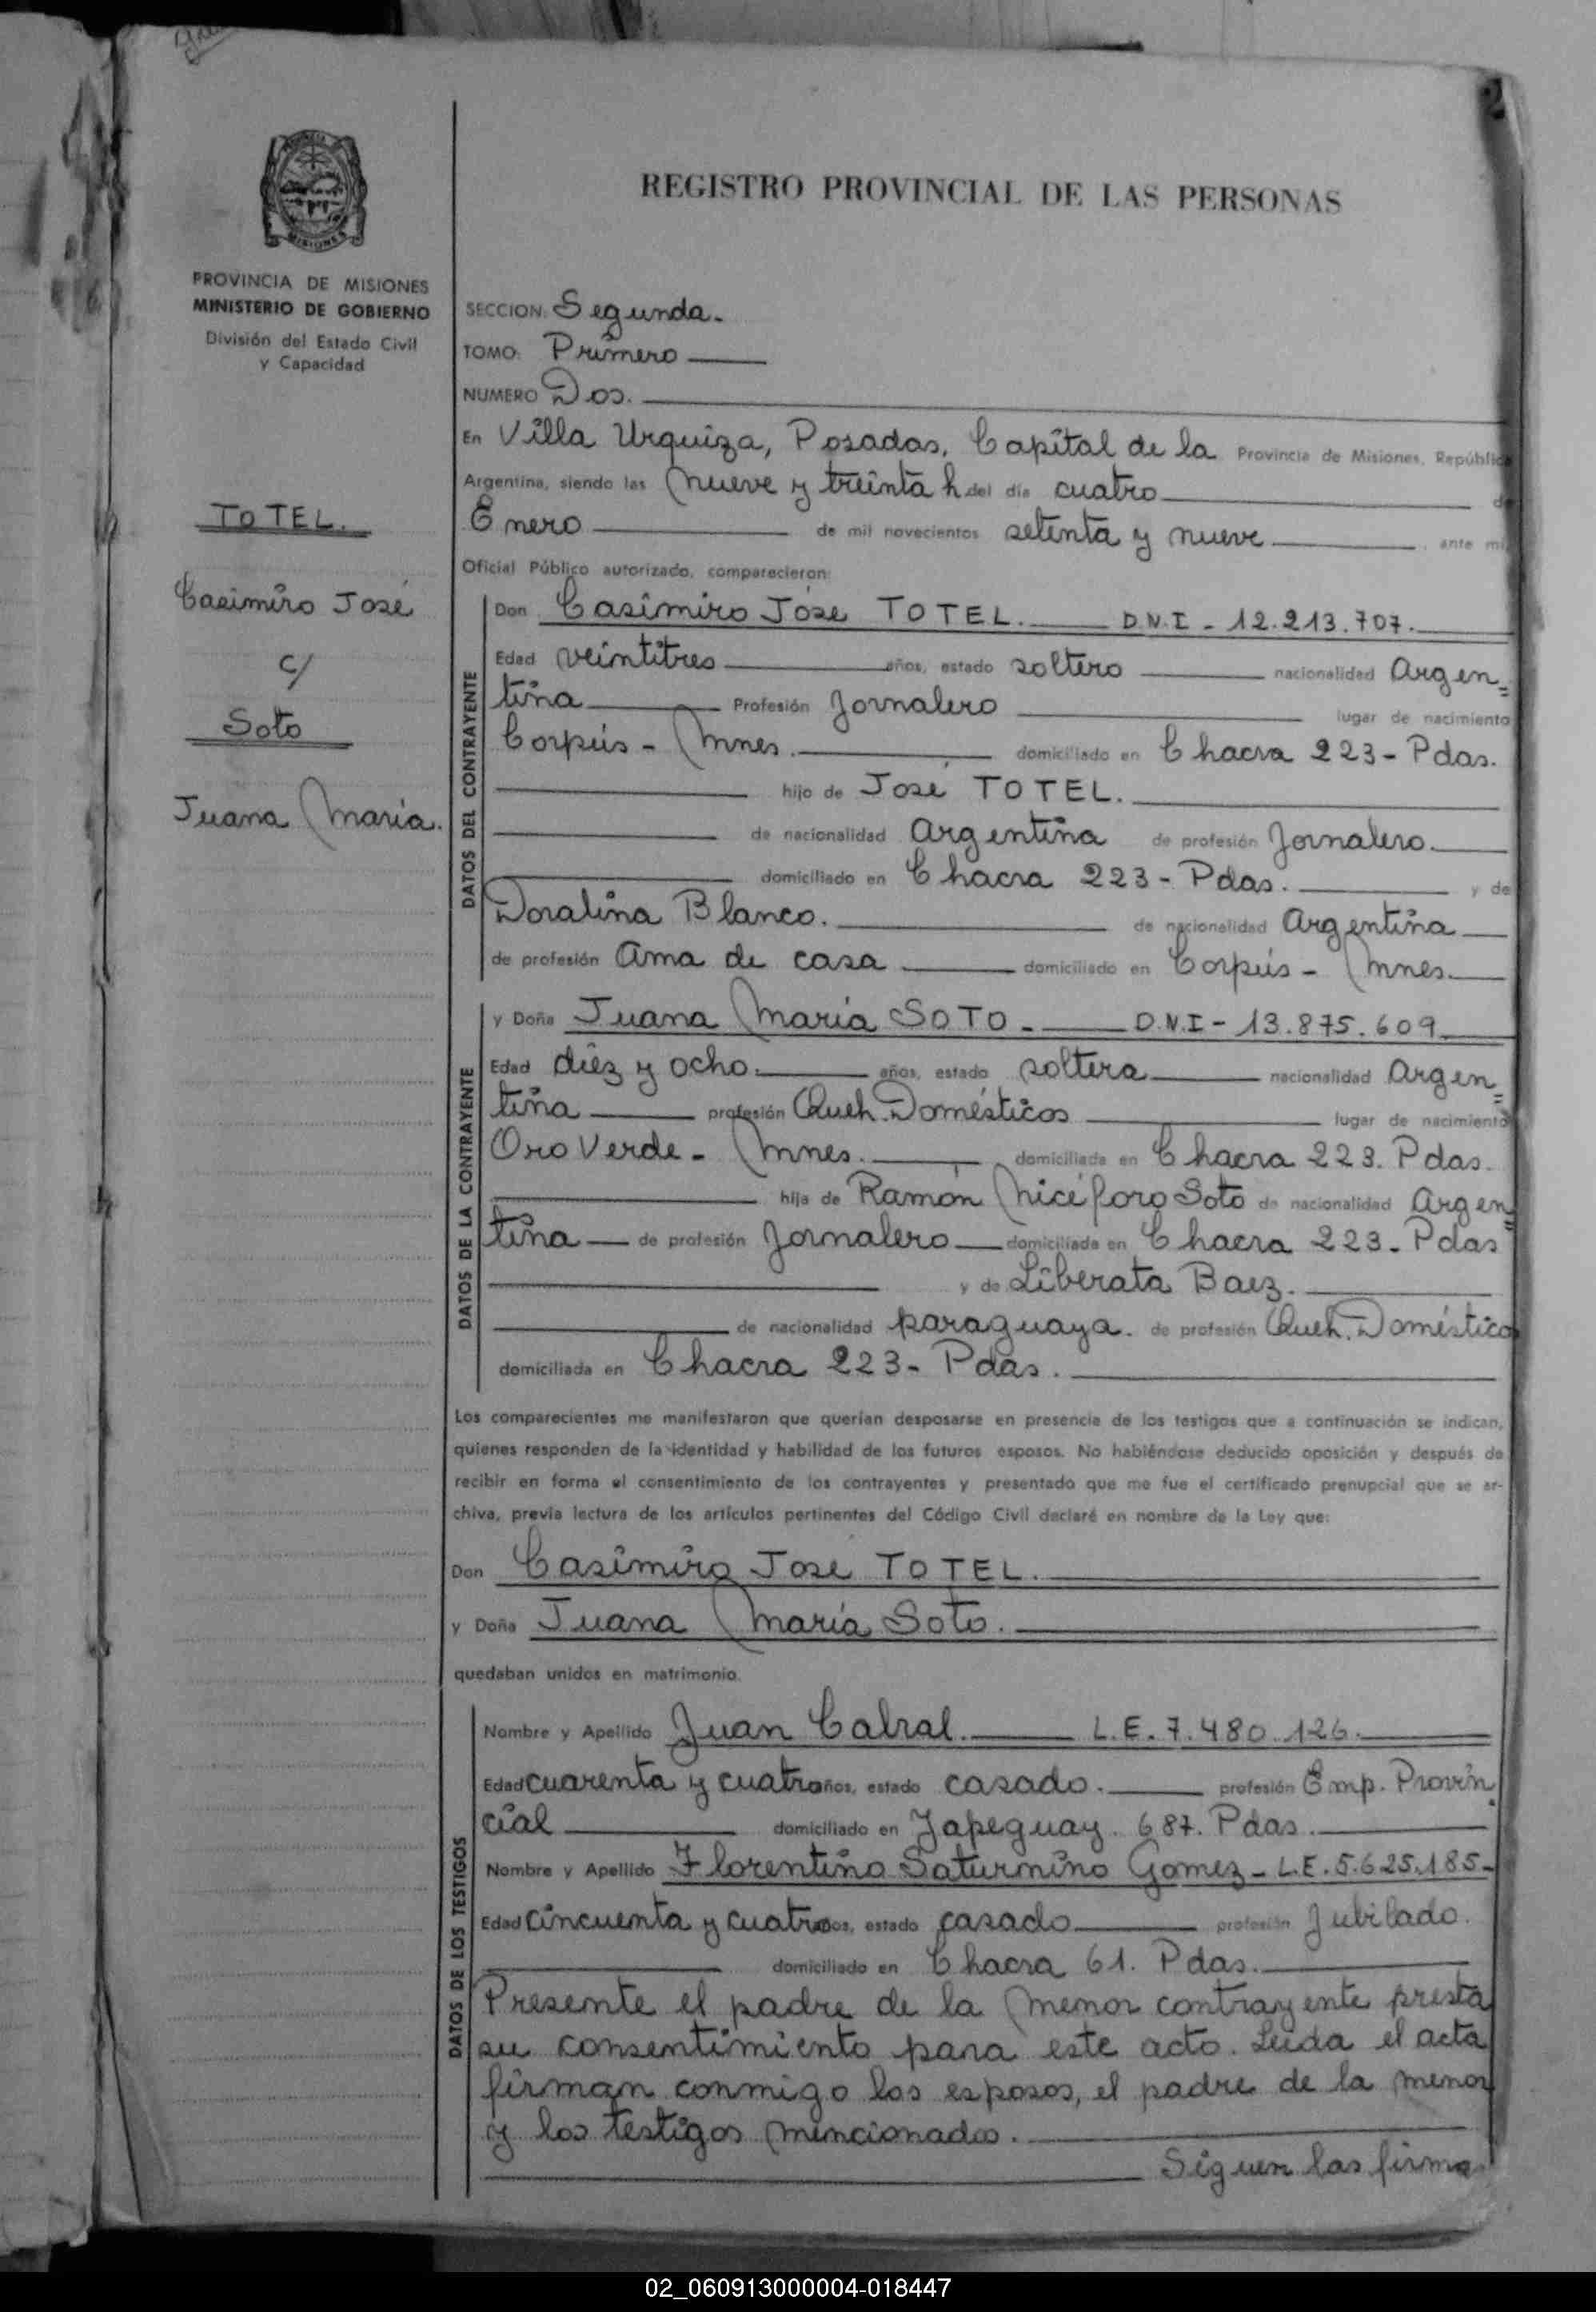 PROVINCIA DE MISIONES
MINISTERIO DE GOBIERNO
División del Estado Civil
y Capacidad
TOTEL.
Casimiro José
c/
Soto
Juana María.
2
REGISTRO PROVINCIAL DE LAS PERSONAS
SECCION: Segunda.
TOMO: Primero
NUMERO Dos.
En Villa Urquiza, Posadas, Capital de la Provincia de Misiones, República
Argentina, siendo las nueve y treinta h. del día cuatro de
Enero de mil novecientos setenta y nueve, ante mí
Oficial Público autorizado, comparecieron:
DATOS DEL CONTRAYENTE
Don Casimiro José TOTEL. D.N.I - 12.213.707.
Edad veintitres años, estado soltero nacionalidad Argen=
tina Profesión Jornalero lugar de nacimiento
Corpús - Mnes. domiciliado en Chacra 223 - Pdas.
hijo de José TOTEL.
de nacionalidad Argentina de profesión Jornalero.
domiciliado en Chacra 223 - Pdas. y de
Doralina Blanco. de nacionalidad Argentina
de profesión Ama de casa domiciliado en Corpús - Mnes.
DATOS DE LA CONTRAYENTE
y Doña Juana María SOTO - D.N.I - 13.875.609
Edad diez y ocho. años, estado soltera nacionalidad Argen=
tina profesión Queh. Domésticos lugar de nacimiento
Oro Verde - Mnes. domiciliada en Chacra 223. Pdas.
hija de Ramón Nicéforo Soto de nacionalidad Argen=
tina de profesión Jornalero domiciliada en Chacra 223 - Pdas
y de Liberata Baez.
de nacionalidad paraguaya. de profesión Queh. Doméstico
domiciliada en Chacra 223 - Pdas.
Los comparecientes me manifestaron que querían desposarse en presencia de los testigos que a continuación se indican,
quienes responden de la identidad y habilidad de los futuros esposos. No habiéndose deducido oposición y después de
recibir en forma el consentimiento de los contrayentes y presentado que me fue el certificado prenupcial que se ar-
chiva, previa lectura de los artículos pertinentes del Código Civil declaré en nombre de la Ley que:
Don Casimiro José TOTEL.
y Doña Juana María Soto.
quedaban unidos en matrimonio.
DATOS DE LOS TESTIGOS
Nombre y Apellido Juan Cabral. L.E. 7.480.126.
Edad cuarenta y cuatro años, estado casado. profesión Emp. Provin
cial domiciliado en Yapeguay. 687. Pdas.
Nombre y Apellido Florentino Saturnino Gomez - L.E. 5.625.185-
Edad cincuenta y cuatro años, estado casado profesión Jubilado.
domiciliado en Chacra 61. Pdas.
Presente el padre de la menor contrayente presta
su consentimiento para este acto. Leida el acta
firman conmigo los esposos, el padre de la menor
y los testigos mencionados.
Siguen las firmas
02_060913000004-018447